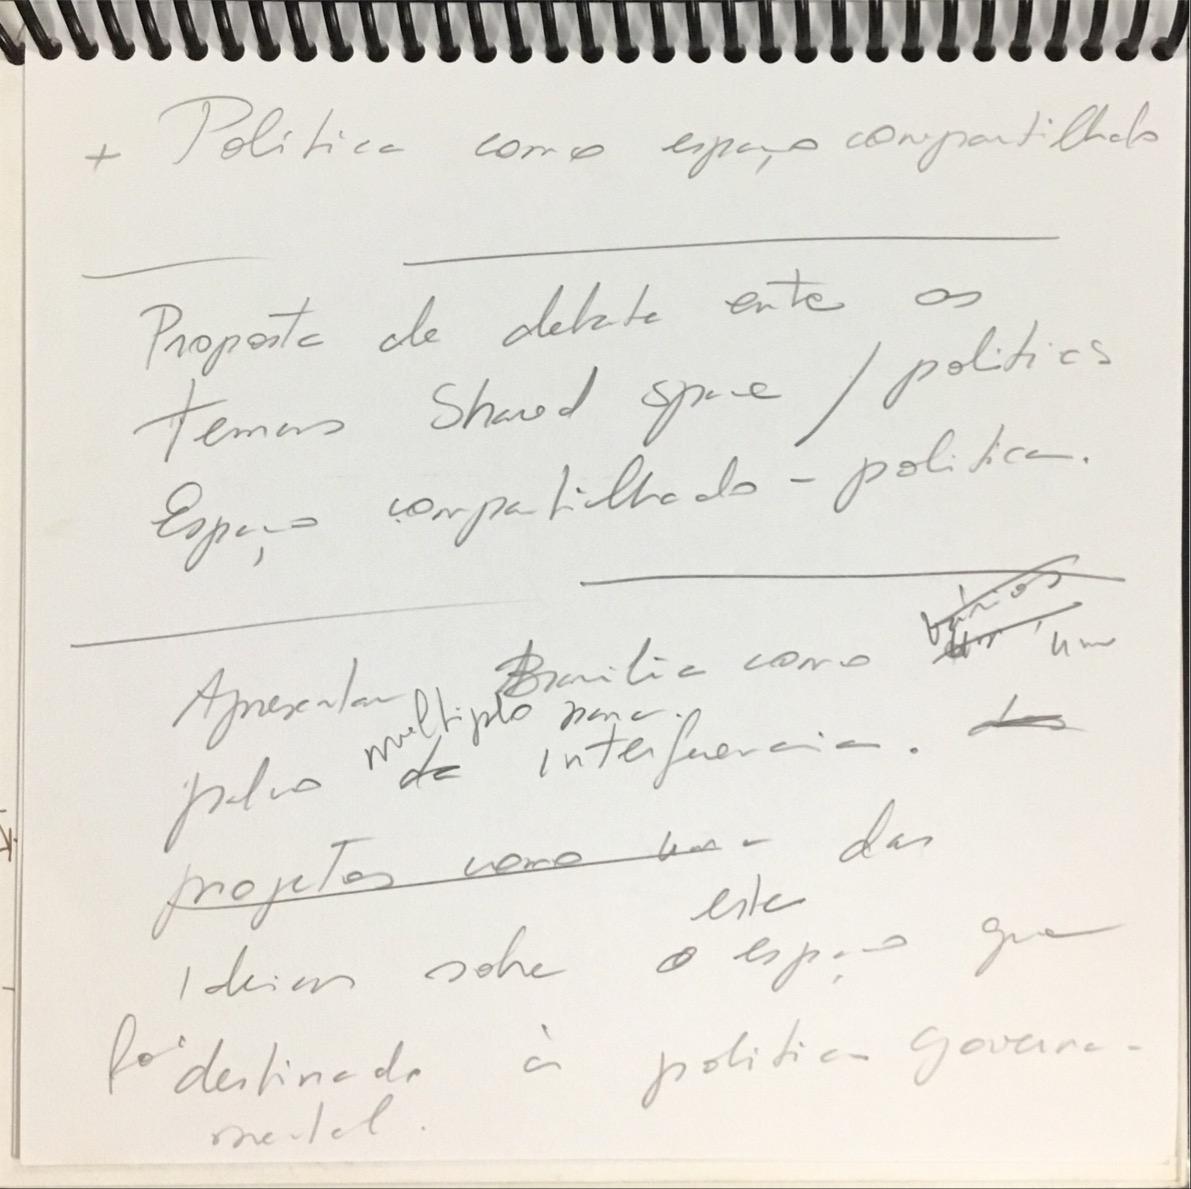 + Política como espaço compartilhado
Proposta de debate entre os
temas Shared space / politics
Espaço compartilhado - politica.
vários
Apresentar Brasilia como um
multiplo para
palco de interferencia.
projetos como uma das
este
Ideias sobre o espaço que
foi destinado à politica governa-
mental.